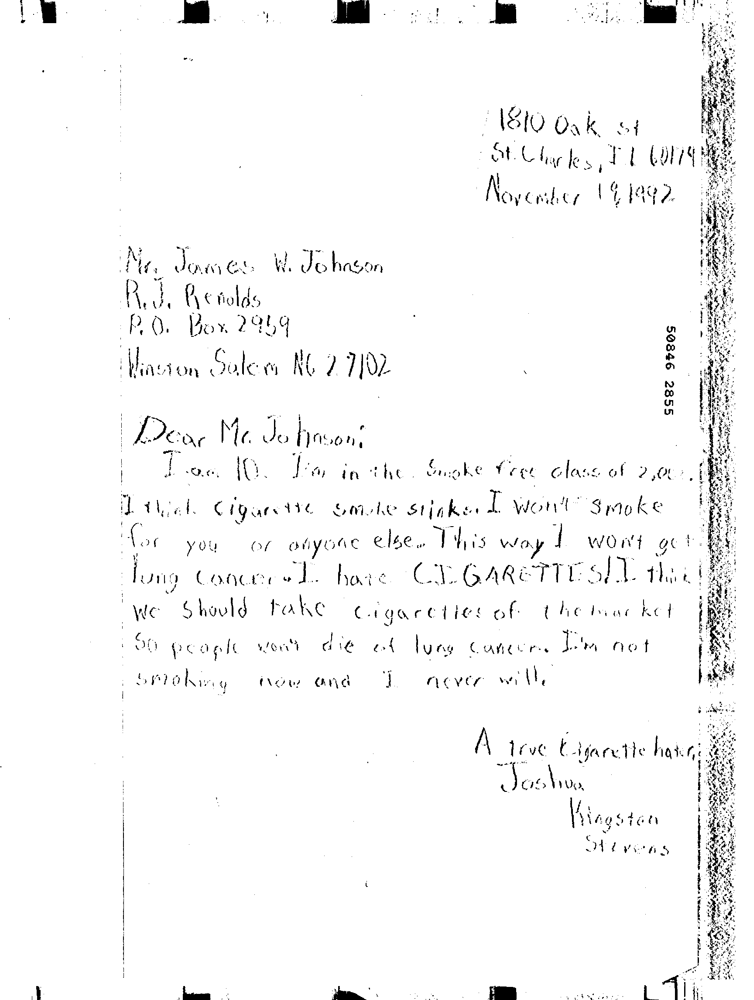 1810 Oak st
St. Charles, Il 60174
November 19, 1992
Mr. James W. Johnson
R.J. Renolds
P.O. Box 2959
Winston Salem NC 27102
50846 2855
Dear Mr. Johnson:
I am 10. I'm in the Smoke free class of 2,000.
I think cigarette smoke stinks. I won't smoke
for you or anyone else. This way I won't get
lung cancer. I hate CIGARETTES! I think
we should take cigarettes of the market
so people won't die of lung cancer. I'm not
smoking now and I never will.
A true Cigarette hater,
Joshua
Kingston
Stevens